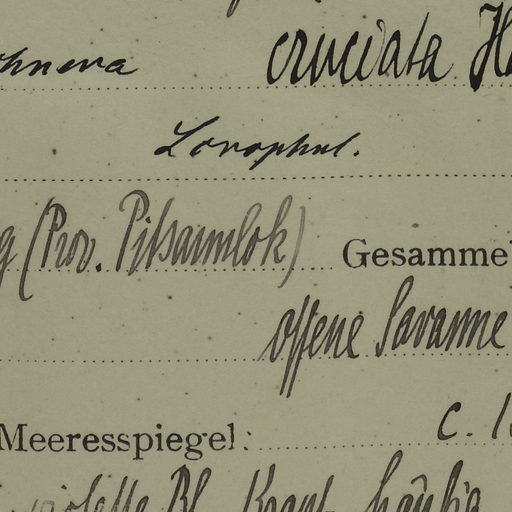 cruciata
Scrophul.
(Prov. Pitsanulok) Gesammel
offene Savanne
Meeresspiegel: c. 1
violette Bl. Kraut häufig